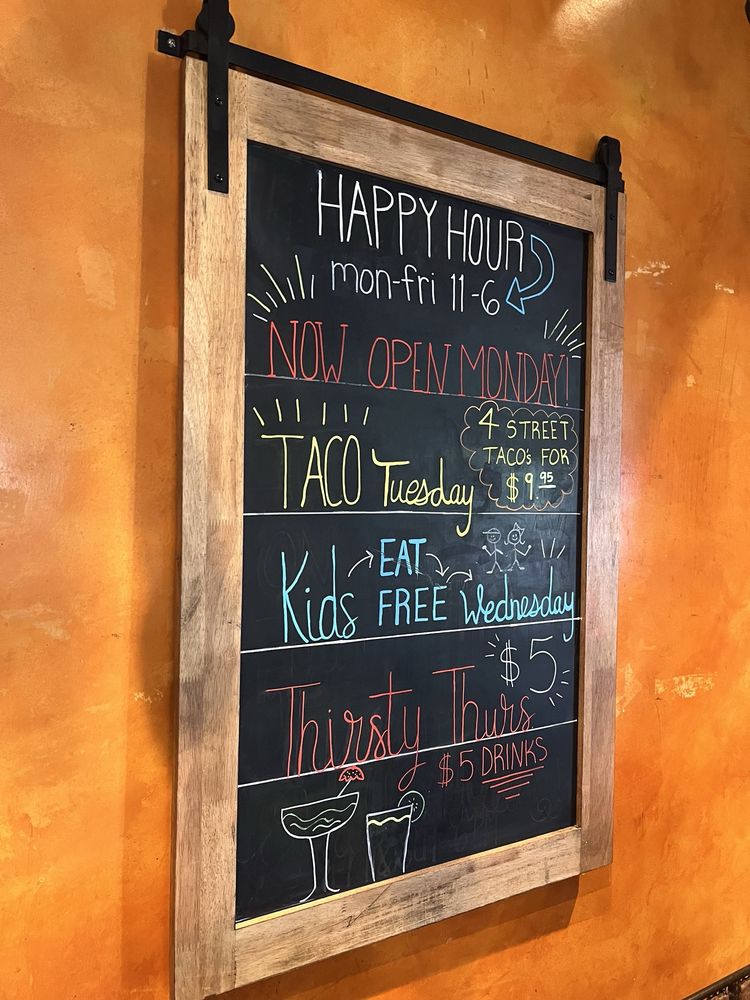 HAPPY HOUR
mon-fri 11-6
NOW OPEN MONDAY!
TACO Tuesday
4 STREET
TACO's FOR
$9.95
Kids EAT FREE Wednesday
$5
Thirsty Thurs
$5 DRINKS